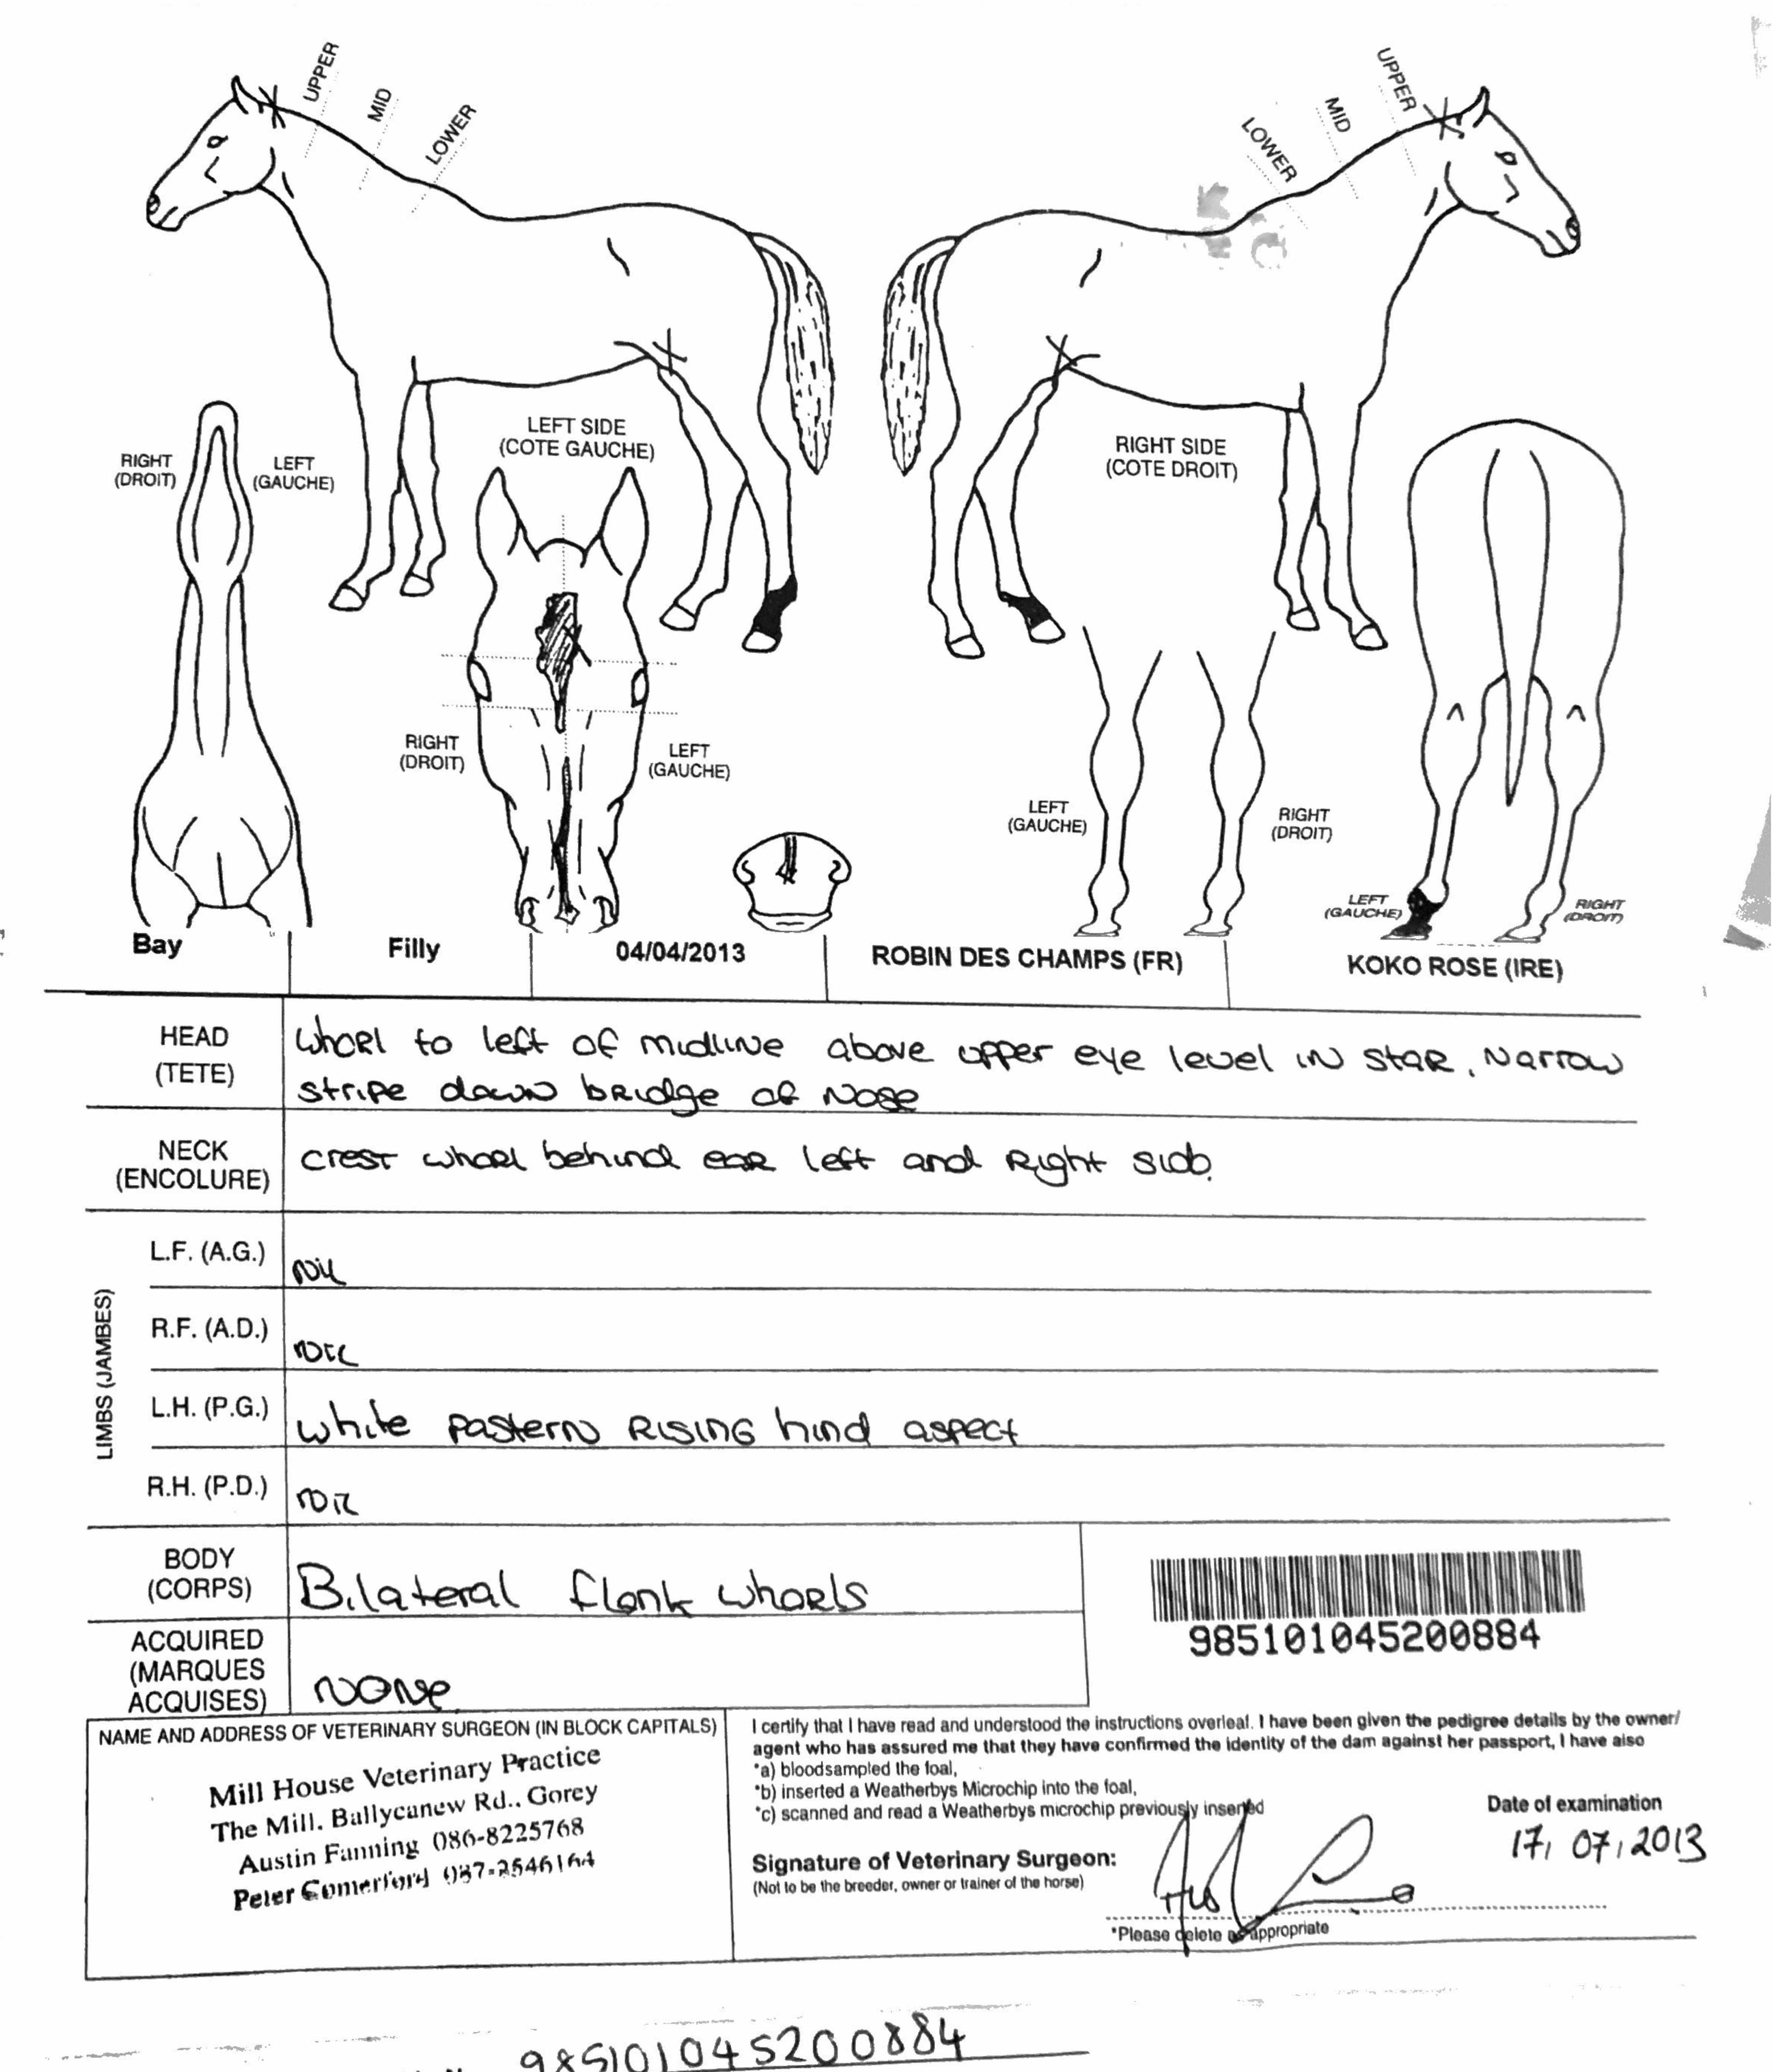 UPPER
MID
LOWER
UPPER
MID
LOWER
LEFT SIDE
(COTE GAUCHE)
RIGHT SIDE
(COTE DROIT)
RIGHT
(DROIT)
LEFT
(GAUCHE)
RIGHT
(DROIT)
LEFT
(GAUCHE)
LEFT
(GAUCHE)
RIGHT
(DROIT)
LEFT
(GAUCHE)
RIGHT
(DROIT)
Bay Filly 04/04/2013 ROBIN DES CHAMPS (FR) KOKO ROSE (IRE)
HEAD
(TETE)
Whorl to left of midline above upper eye level in star, Narrow
stripe down bridge of Nose
NECK
(ENCOLURE)
crest whorl behind ear left and Right side.
LIMBS (JAMBES)
L.F. (A.G.)
nil
R.F. (A.D.)
nil
L.H. (P.G.)
white pastern RISING hind aspect
R.H. (P.D.)
nil
BODY
(CORPS)
Bilateral flank whorls
985101045200884
ACQUIRED
(MARQUES
ACQUISES)
NONe
NAME AND ADDRESS OF VETERINARY SURGEON (IN BLOCK CAPITALS)
Mill House Veterinary Practice
The Mill. Ballycanew Rd., Gorey
Austin Fanning 086-8225768
Peter Comerford 087-2546164
I certify that I have read and understood the instructions overleaf. I have been given the pedigree details by the owner/
agent who has assured me that they have confirmed the identity of the dam against her passport, I have also
*a) bloodsampled the foal,
*b) inserted a Weatherbys Microchip into the foal,
*c) scanned and read a Weatherbys microchip previously inserted
Date of examination
17/07/2013
Signature of Veterinary Surgeon:
(Not to be the breeder, owner or trainer of the horse)
*Please delete as appropriate
985101045200884